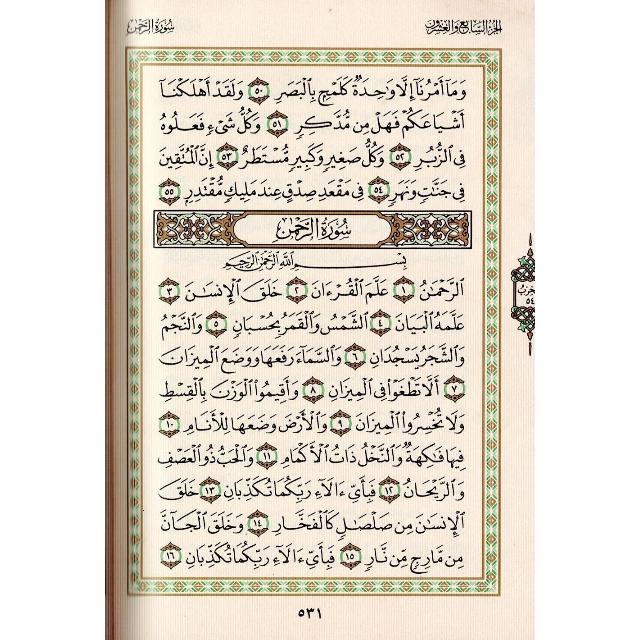 سُورَةُ الرَّحْمَٰن
الجُزْءُ السَّابِعُ وَالعِشْرُونَ
وَمَآ أَمْرُنَآ إِلَّا وَٰحِدَةٌ كَلَمْحٍۭ بِٱلْبَصَرِ ٥٠ وَلَقَدْ أَهْلَكْنَآ
أَشْيَاعَكُمْ فَهَلْ مِن مُّدَّكِرٍ ٥١ وَكُلُّ شَىْءٍ فَعَلُوهُ
فِى ٱلزُّبُرِ ٥٢ وَكُلُّ صَغِيرٍ وَكَبِيرٍ مُّسْتَطَرٌ ٥٣ إِنَّ ٱلْمُتَّقِينَ
فِى جَنَّٰتٍ وَنَهَرٍ ٥٤ فِى مَقْعَدِ صِدْقٍ عِندَ مَلِيكٍ مُّقْتَدِرٍۭ ٥٥
سُورَةُ الرَّحْمَٰن
بِسْمِ ٱللَّهِ ٱلرَّحْمَٰنِ ٱلرَّحِيمِ
ٱلرَّحْمَٰنُ ١ عَلَّمَ ٱلْقُرْءَانَ ٢ خَلَقَ ٱلْإِنسَٰنَ ٣
عَلَّمَهُ ٱلْبَيَانَ ٤ ٱلشَّمْسُ وَٱلْقَمَرُ بِحُسْبَانٍ ٥ وَٱلنَّجْمُ
وَٱلشَّجَرُ يَسْجُدَانِ ٦ وَٱلسَّمَآءَ رَفَعَهَا وَوَضَعَ ٱلْمِيزَانَ
٧ أَلَّا تَطْغَوْا۟ فِى ٱلْمِيزَانِ ٨ وَأَقِيمُوا۟ ٱلْوَزْنَ بِٱلْقِسْطِ
وَلَا تُخْسِرُوا۟ ٱلْمِيزَانَ ٩ وَٱلْأَرْضَ وَضَعَهَا لِلْأَنَامِ ١٠
فِيهَا فَٰكِهَةٌ وَٱلنَّخْلُ ذَاتُ ٱلْأَكْمَامِ ١١ وَٱلْحَبُّ ذُو ٱلْعَصْفِ
وَٱلرَّيْحَانُ ١٢ فَبِأَىِّ ءَالَآءِ رَبِّكُمَا تُكَذِّبَانِ ١٣ خَلَقَ
ٱلْإِنسَٰنَ مِن صَلْصَٰلٍ كَٱلْفَخَّارِ ١٤ وَخَلَقَ ٱلْجَآنَّ
مِن مَّارِجٍ مِّن نَّارٍ ١٥ فَبِأَىِّ ءَالَآءِ رَبِّكُمَا تُكَذِّبَانِ ١٦
حِزْبُ
٥٤
٥٣١